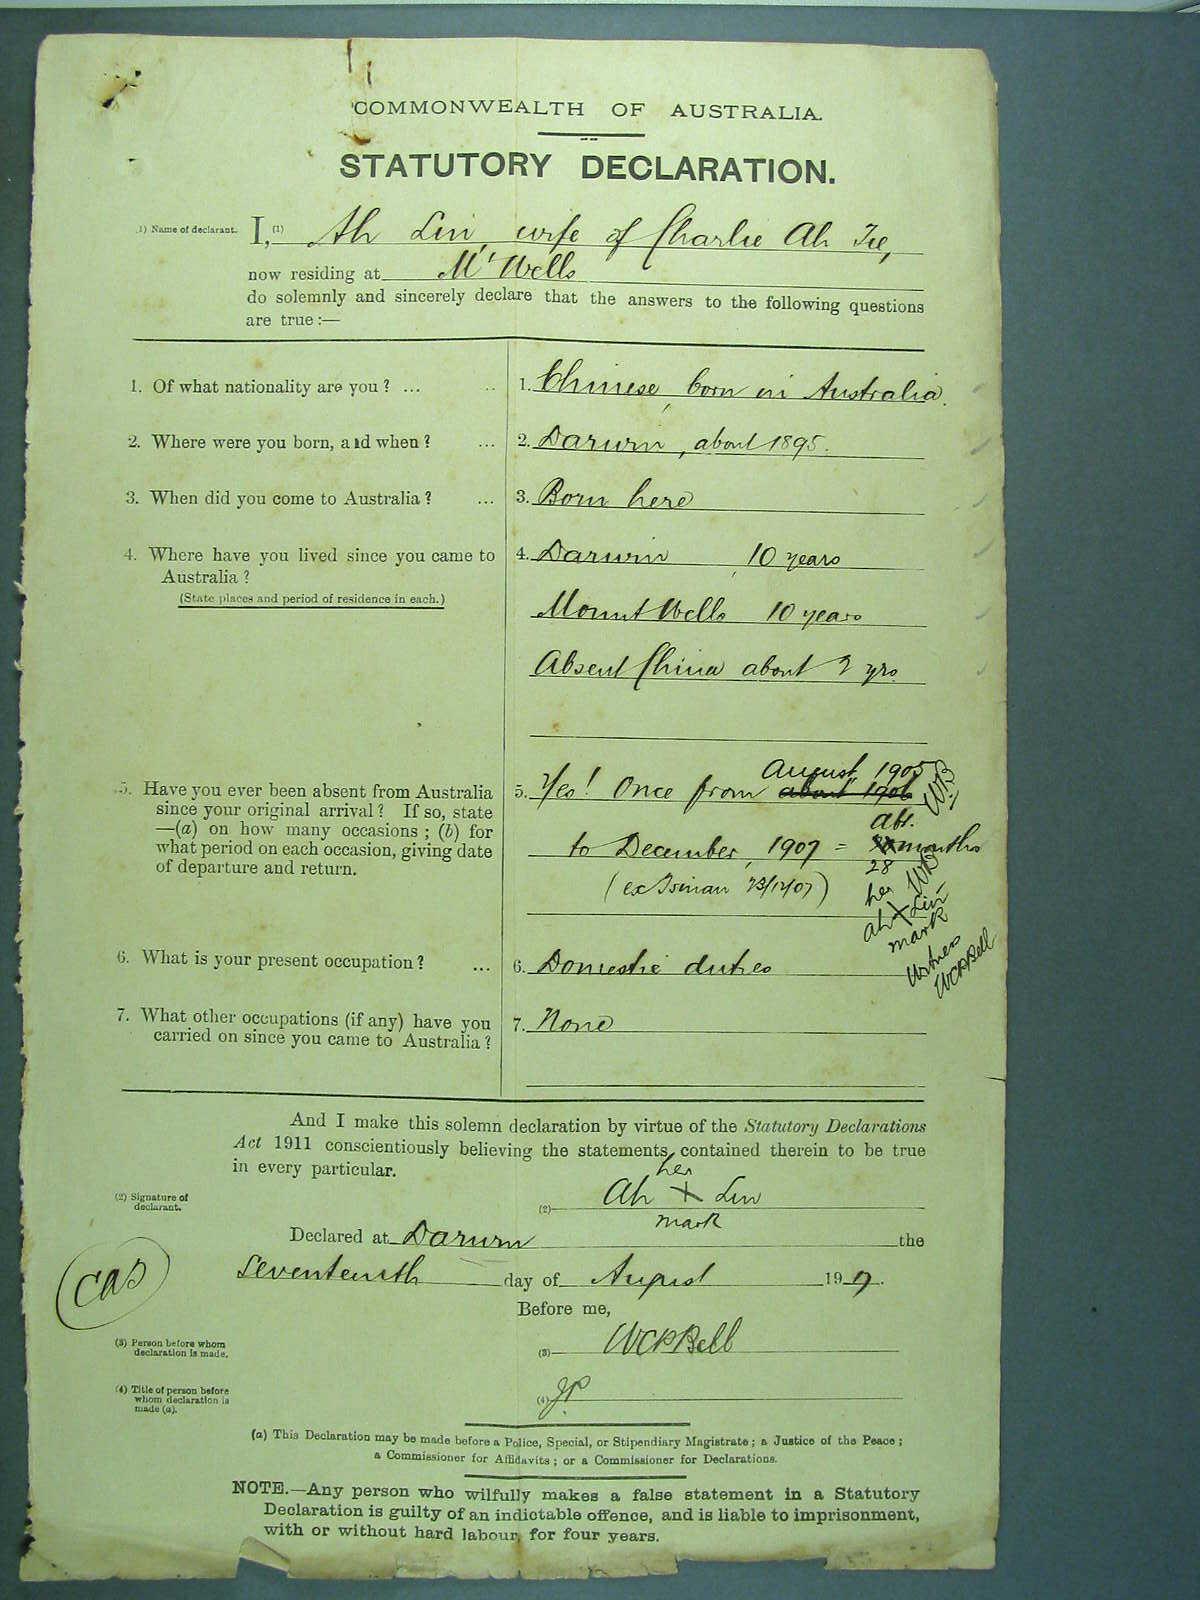 COMMONWEALTH OF AUSTRALIA.
STATUTORY DECLARATION.
(1) Name of declarant. I, (1) Ah Lin, wife of Charlie Ah Tee,
now residing at Mt Wells
do solemnly and sincerely declare that the answers to the following questions
are true :—
1. Of what nationality are you ? ... ..
1. Chinese, born in Australia.
2. Where were you born, and when ? ...
2. Darwin, about 1895.
3. When did you come to Australia ? ...
3. Born here
4. Where have you lived since you came to
Australia ?
(State places and period of residence in each.)
4. Darwin, 10 years
Mount Wells 10 years
Absent China about 2 yrs.
5. Have you ever been absent from Australia
since your original arrival ? If so, state
—(a) on how many occasions ; (b) for
what period on each occasion, giving date
of departure and return.
August 1905
5. Yes! Once from about 1906 WB
abt.
to December, 1907 = months
28
(ex 23/12/07)
WB
her
Ah X Lin
mark
Witness
WCPBell
6. What is your present occupation ? ...
6. Domestic duties
7. What other occupations (if any) have you
carried on since you came to Australia ?
7. None
And I make this solemn declaration by virtue of the Statutory Declarations
Act 1911 conscientiously believing the statements contained therein to be true
in every particular.
her
(2) Signature of
declarant.
(2) Ah X Lin
mark
Declared at Darwin the
seventeenth day of August 191 .
CAS
Before me,
(3) Person before whom
declaration is made.
(3) WCPBell
(4) Title of person before
whom declaration is
made (a).
(4) JP.
(a) This Declaration may be made before a Police, Special, or Stipendiary Magistrate ; a Justice of the Peace ;
a Commissioner for Affidavits ; or a Commissioner for Declarations.
NOTE.—Any person who wilfully makes a false statement in a Statutory
Declaration is guilty of an indictable offence, and is liable to imprisonment,
with or without hard labour, for four years.